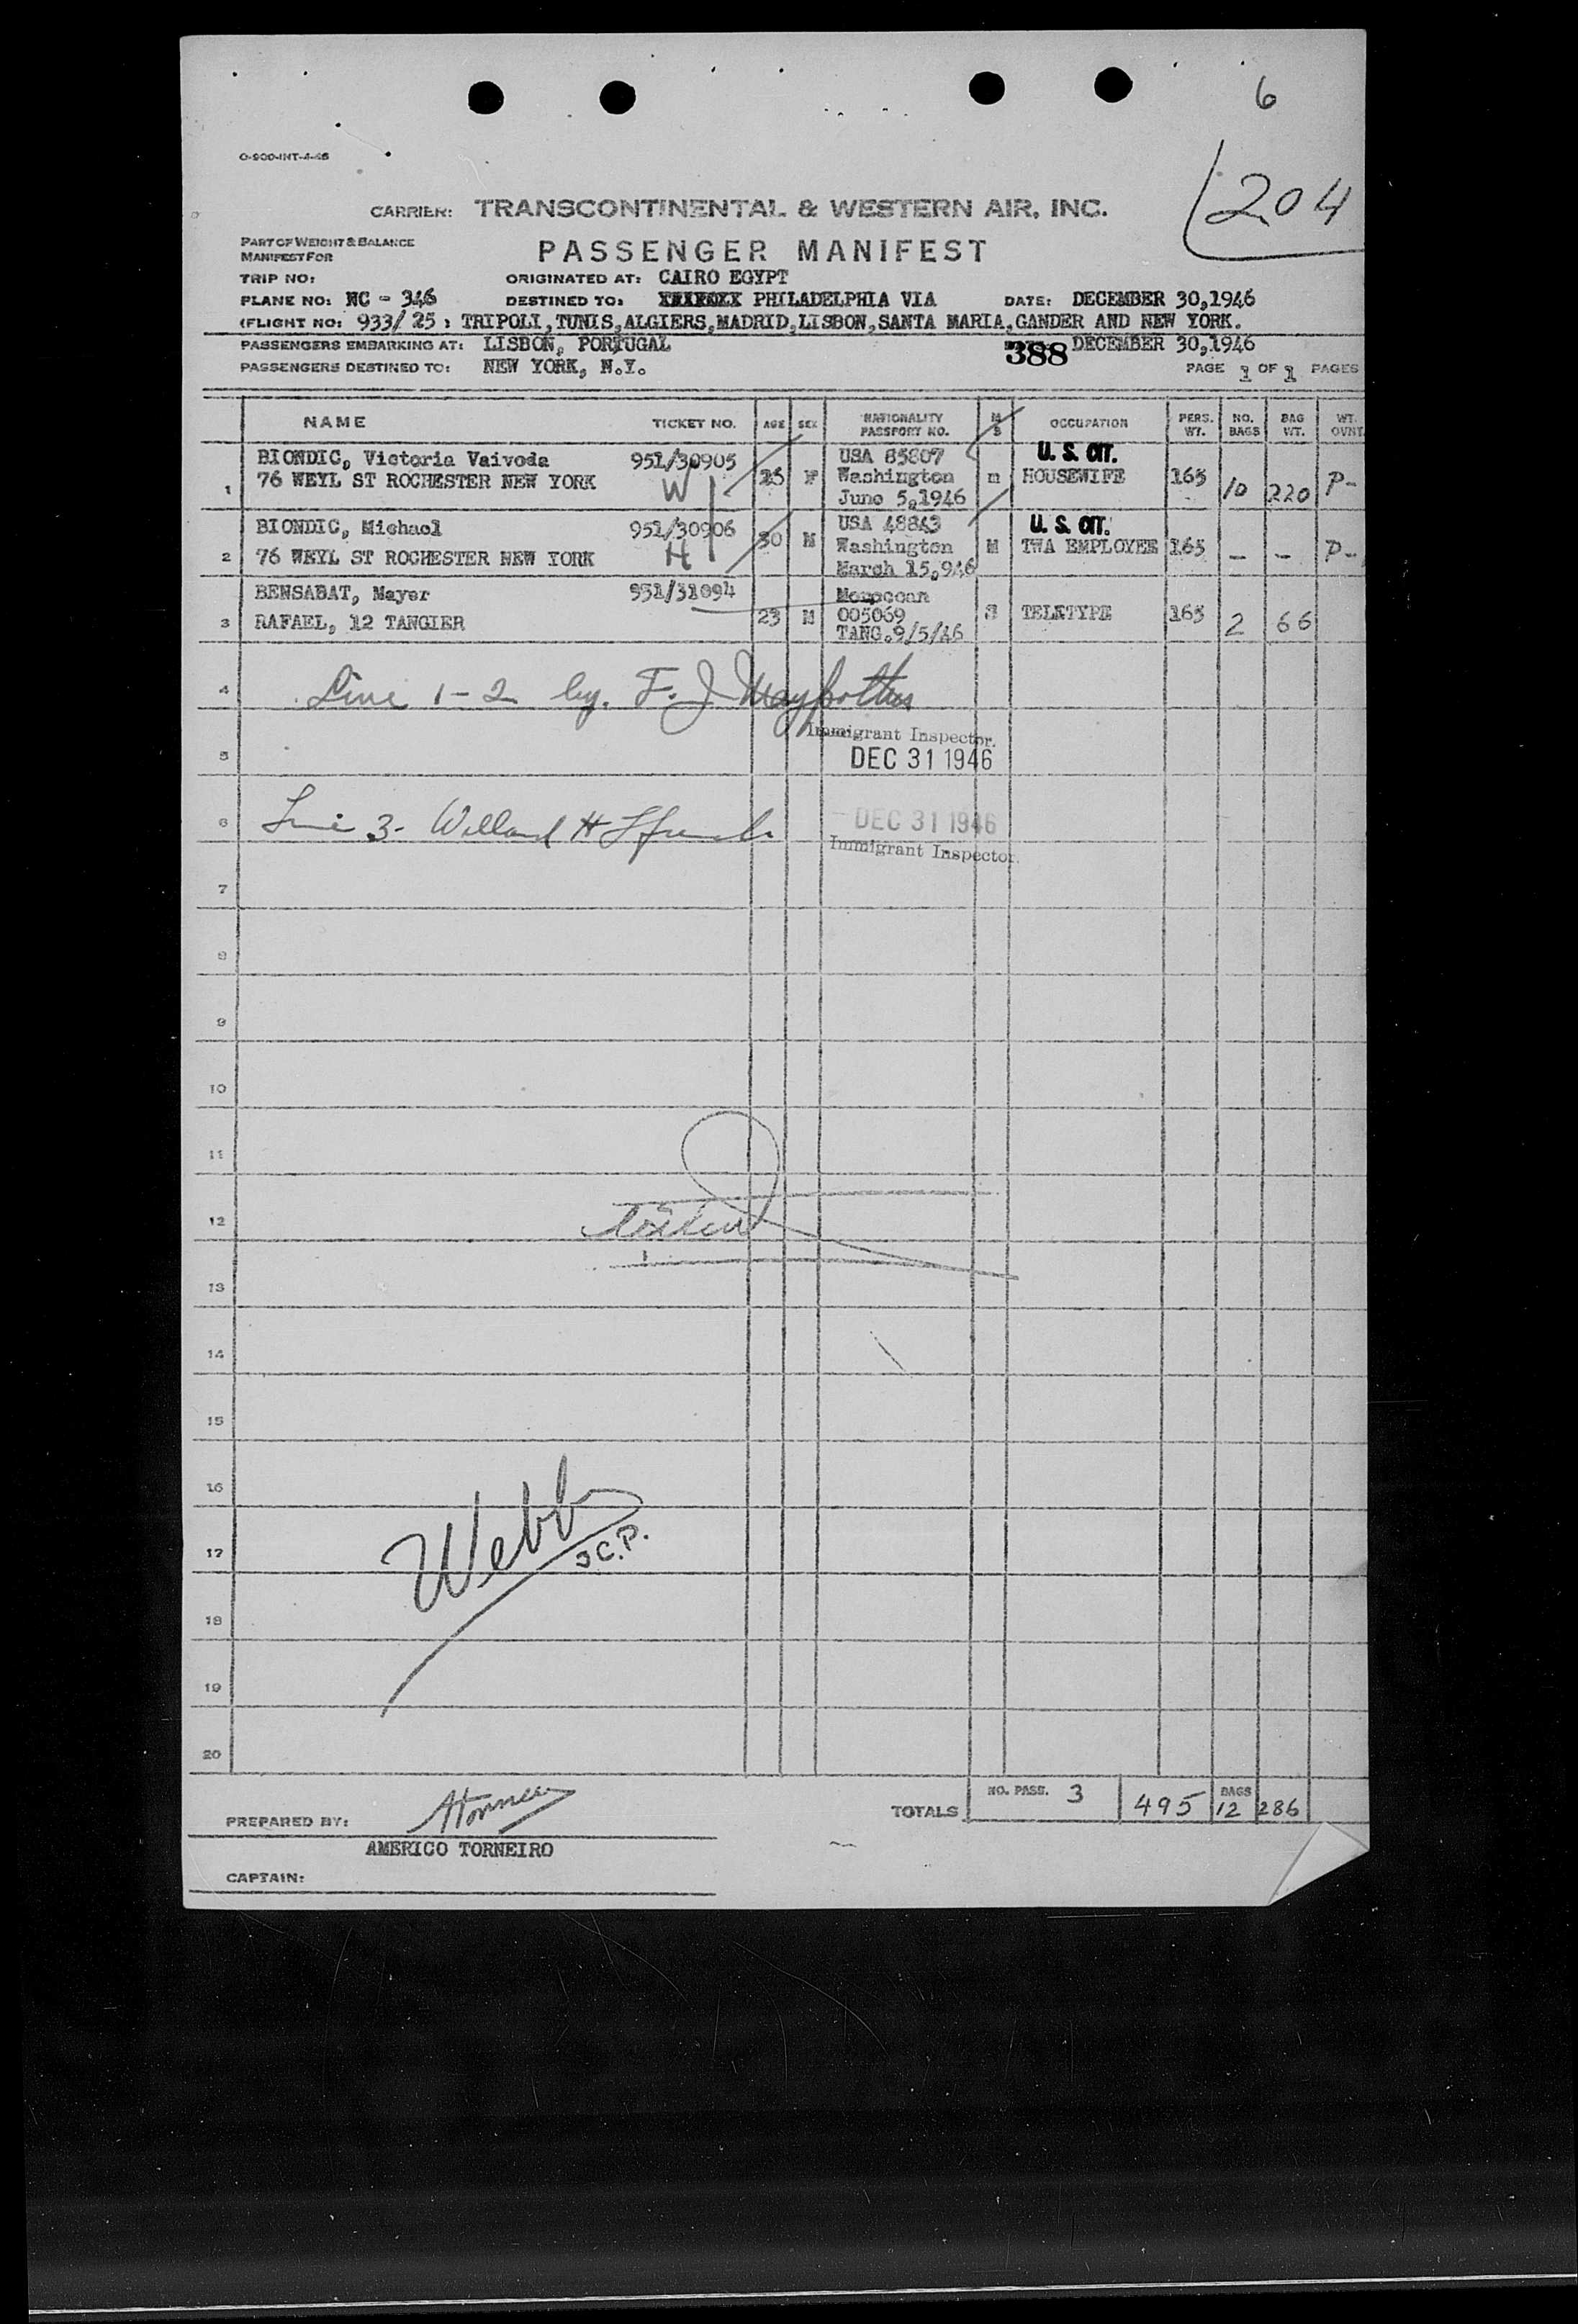 6
204
O-900-INT-4-46
CARRIER: TRANSCONTINENTAL & WESTERN AIR, INC.
PART OF WEIGHT & BALANCE
MANIFEST FOR
PASSENGER MANIFEST
TRIP NO: ORIGINATED AT: CAIRO EGYPT
PLANE NO: NC - 346 DESTINED TO: PHILADELPHIA VIA DATE: DECEMBER 30,1946
(FLIGHT NO: 933/25: TRIPOLI,TUNIS,ALGIERS,MADRID,LISBON,SANTA MARIA,GANDER AND NEW YORK.
PASSENGERS EMBARKING AT: LISBON, PORTUGAL 388 DECEMBER 30,1946
PASSENGERS DESTINED TO: NEW YORK, N.Y. PAGE 1 OF 1 PAGES
NAME TICKET NO. AGE SEX NATIONALITY PASSPORT NO. M S OCCUPATION PERS. WT. NO. BAGS BAG WT. WT. OVNT
BIONDIC, Victoria Vaivoda 951/30905 USA 85807 U. S. CIT.
1 76 WEYL ST ROCHESTER NEW YORK W F Washington m HOUSEWIFE 165 10 220 P-
June 5,1946
BIONDIC, Michael 951/30906 USA 48843 U. S. CIT.
2 76 WEYL ST ROCHESTER NEW YORK H 30 M Washington M TWA EMPLOYEE 165 - - P-
March 15,946
BENSABAT, Mayer 951/31094 Moroccan
3 RAFAEL, 12 TANGIER 23 M 005069 S TELETYPE 165 2 66
TANG.9/5/46
4 Line 1-2 by. F. J.
Immigrant Inspector.
5 DEC 31 1946
6 Line 3- Willard H DEC 31 1946
Immigrant Inspector.
7
8
9
10
11
12
13
14
15
16
Webb
17 J C.P.
18
19
20
TOTALS NO. PASS. 3 495 BAGS 12 286
PREPARED BY:
AMERICO TORNEIRO
CAPTAIN: